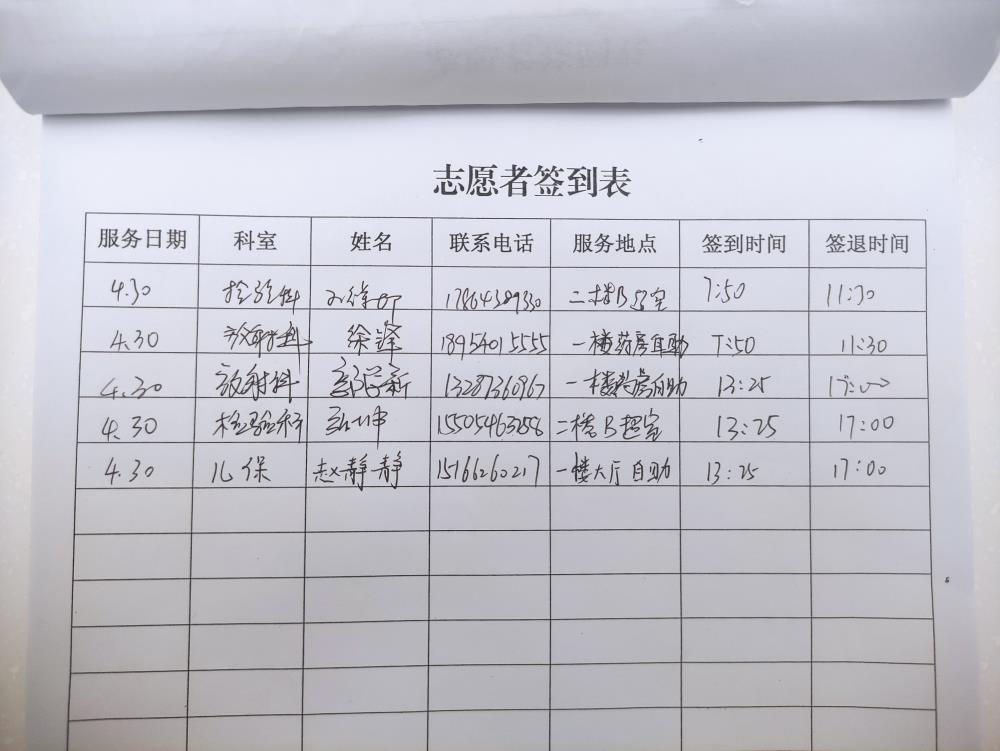 志愿者签到表
服务日期 科室 姓名 联系电话 服务地点 签到时间 签退时间
4.30 检验科 17864389330 二楼B超室 7:50 11:30
4.30 放射科 徐锋 18954015555 一楼药房自助 7:50 11:30
4.30 放射科 13287360867 一楼药房自助 13:25 17:00
4.30 检验科 15505463258 二楼B超室 13:25 17:00
4.30 儿保 赵静静 15166260217 一楼大厅自助 13:25 17:00